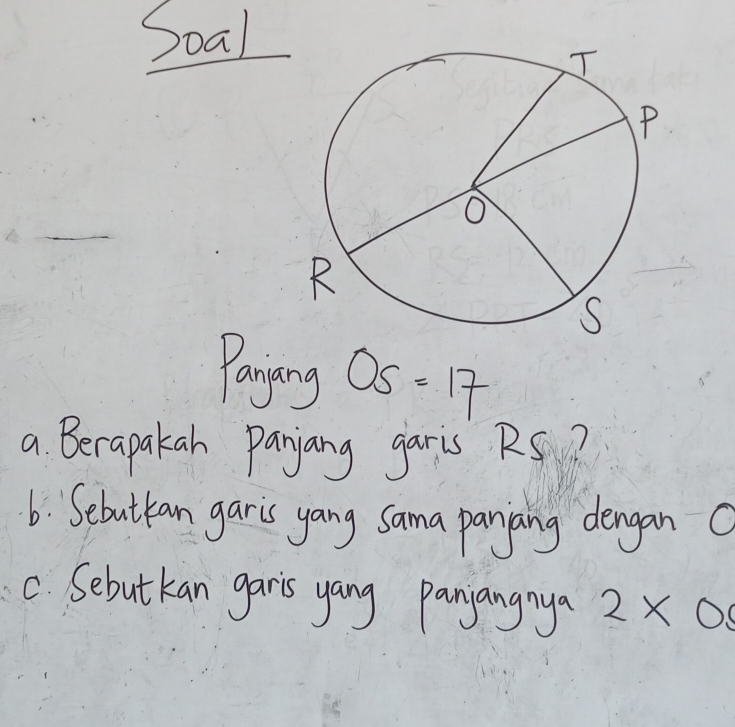 Soal
T
P
O
R
S
Panjang OS = 17
a. Berapakah panjang garis RS ?
b. Sebutkan garis yang sama panjang dengan O
c. Sebutkan garis yang panjangnya 2 x OS